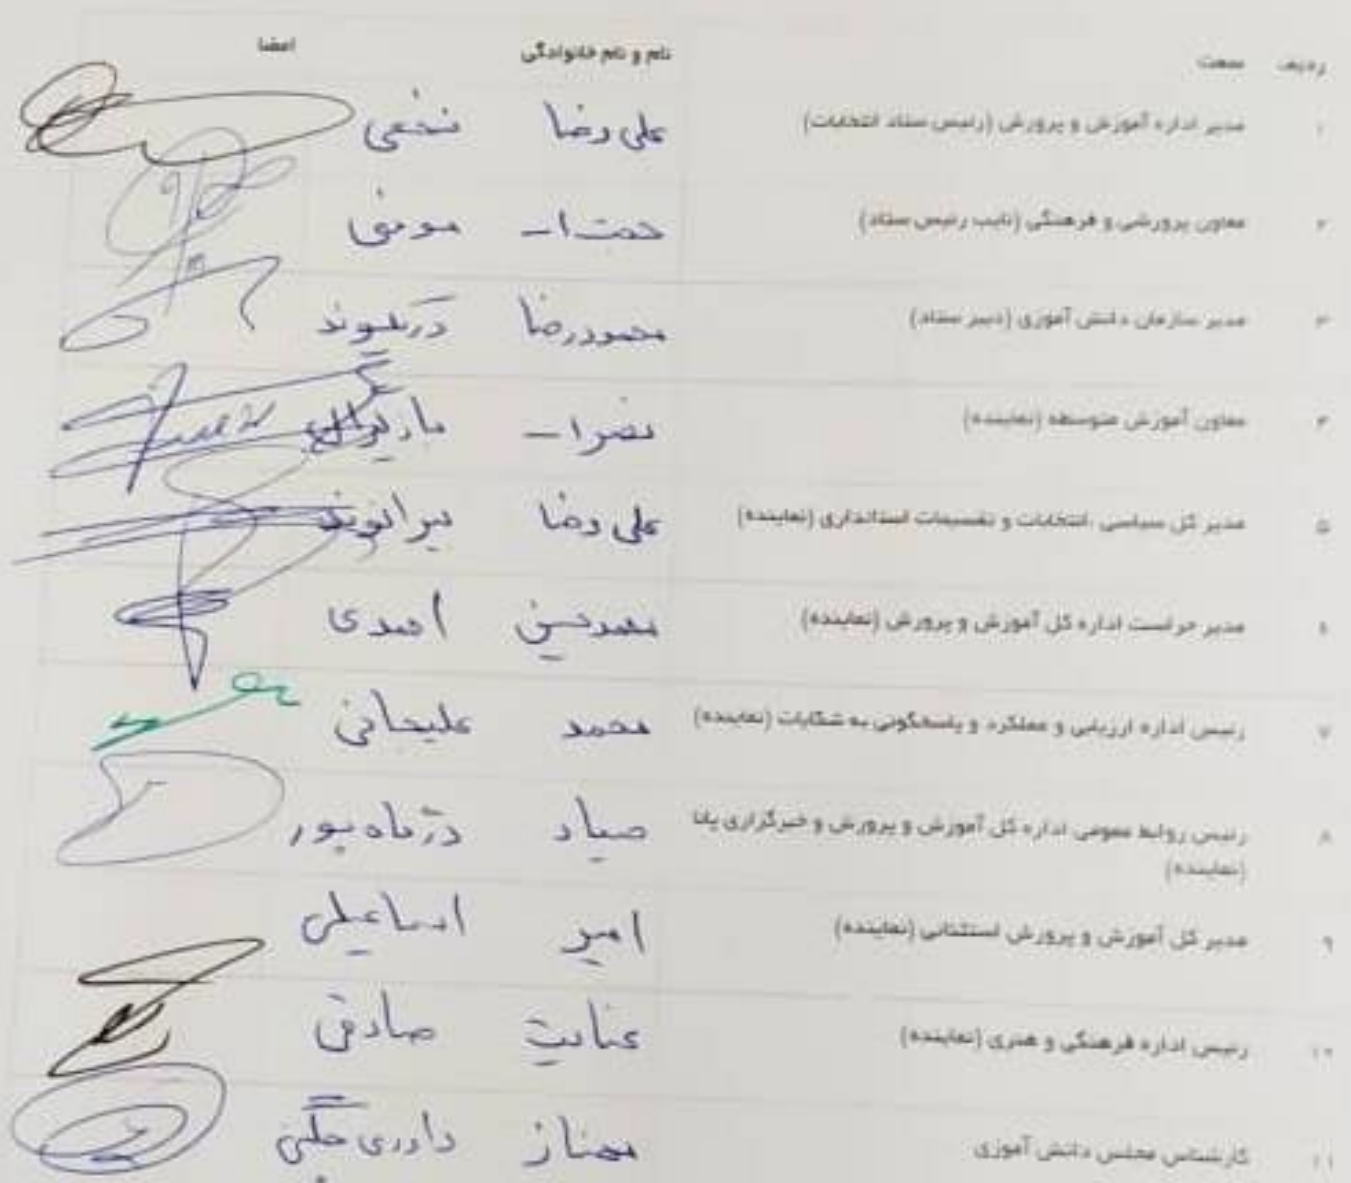 ردیف سمت نام و نام خانوادگی امضا
۱ مدیر اداره آموزش و پرورش (رئیس ستاد انتخابات) علی رضا نخعی
۲ معاون پرورشی و فرهنگی (نایب رئیس ستاد) حمت ا...
۳ مدیر سازمان دانش آموزی (دبیر ستاد) محمودرضا دریکوند
۴ معاون آموزش متوسطه (نماینده) نصرا...
۵ مدیر کل سیاسی ،انتخابات و تقسیمات استانداری (نماینده) علی رضا بیرانوند
۶ مدیر حراست اداره کل آموزش و پرورش (نماینده) محمدحسین احمدی
۷ رئیس اداره ارزیابی و عملکرد و پاسخگویی به شکایات (نماینده) محمد علیخانی
۸ رئیس روابط عمومی اداره کل آموزش و پرورش و خبرگزاری پانا صیاد دژماه پور
(نماینده)
۹ مدیر کل آموزش و پرورش استثنائی (نماینده) امیر اسماعیلی
۱۰ رئیس اداره فرهنگی و هنری (نماینده) عنایت صادقی
۱۱ کارشناس مجلس دانش آموزی مهناز داوری چگنی